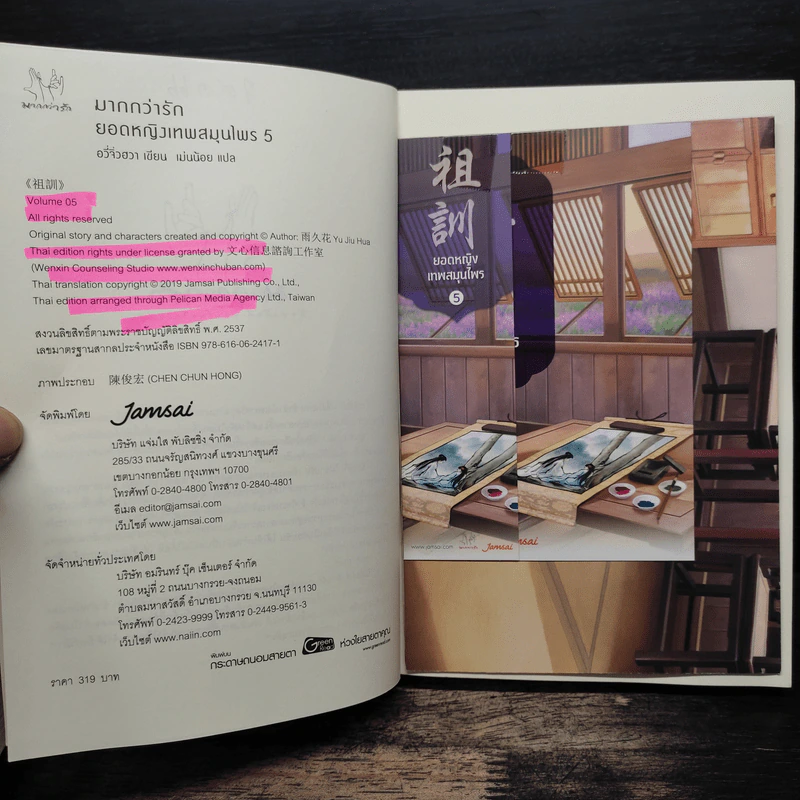 มากกว่ารัก
มากกว่ารัก
ยอดหญิงเทพสมุนไพร 5
อวี่จิ่วฮวา เขียน เม่นน้อย แปล
《祖訓》
Volume 05
All rights reserved
Original story and characters created and copyright © Author: 雨久花 Yu Jiu Hua
Thai edition rights under license granted by 文心信息諮詢工作室
(Wenxin Counseling Studio www.wenxinchuban.com)
Thai translation copyright © 2019 Jamsai Publishing Co., Ltd.,
Thai edition arranged through Pelican Media Agency Ltd., Taiwan
สงวนลิขสิทธิ์ตามพระราชบัญญัติลิขสิทธิ์ พ.ศ. 2537
เลขมาตรฐานสากลประจำหนังสือ ISBN 978-616-06-2417-1
ภาพประกอบ 陳俊宏 (CHEN CHUN HONG)
จัดพิมพ์โดย Jamsai
บริษัท แจ่มใส พับลิชชิ่ง จำกัด
285/33 ถนนจรัญสนิทวงศ์ แขวงบางขุนศรี
เขตบางกอกน้อย กรุงเทพฯ 10700
โทรศัพท์ 0-2840-4800 โทรสาร 0-2840-4801
อีเมล editor@jamsai.com
เว็บไซต์ www.jamsai.com
จัดจำหน่ายทั่วประเทศโดย
บริษัท อมรินทร์ บุ๊ค เซ็นเตอร์ จำกัด
108 หมู่ที่ 2 ถนนบางกรวย-จงถนอม
ตำบลมหาสวัสดิ์ อำเภอบางกรวย จ.นนทบุรี 11130
โทรศัพท์ 0-2423-9999 โทรสาร 0-2449-9561-3
เว็บไซต์ www.naiin.com
พิมพ์บน
กระดาษถนอมสายตา Green Read ห่วงใยสายตาคุณ
www.greenread.com
ราคา 319 บาท
祖訓
ยอดหญิง
เทพสมุนไพร
5
5
www.jamsai.com มากกว่ารัก Jamsai